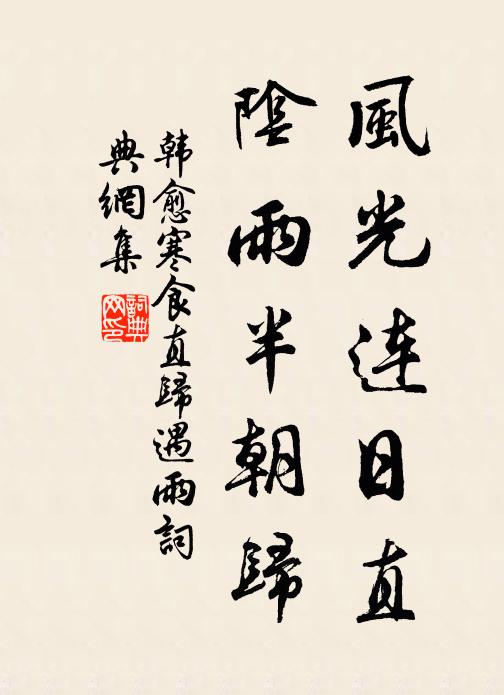 風光連日直
陰雨半朝歸
韩愈寒食直歸遇雨詞
典網集
詞典
网印